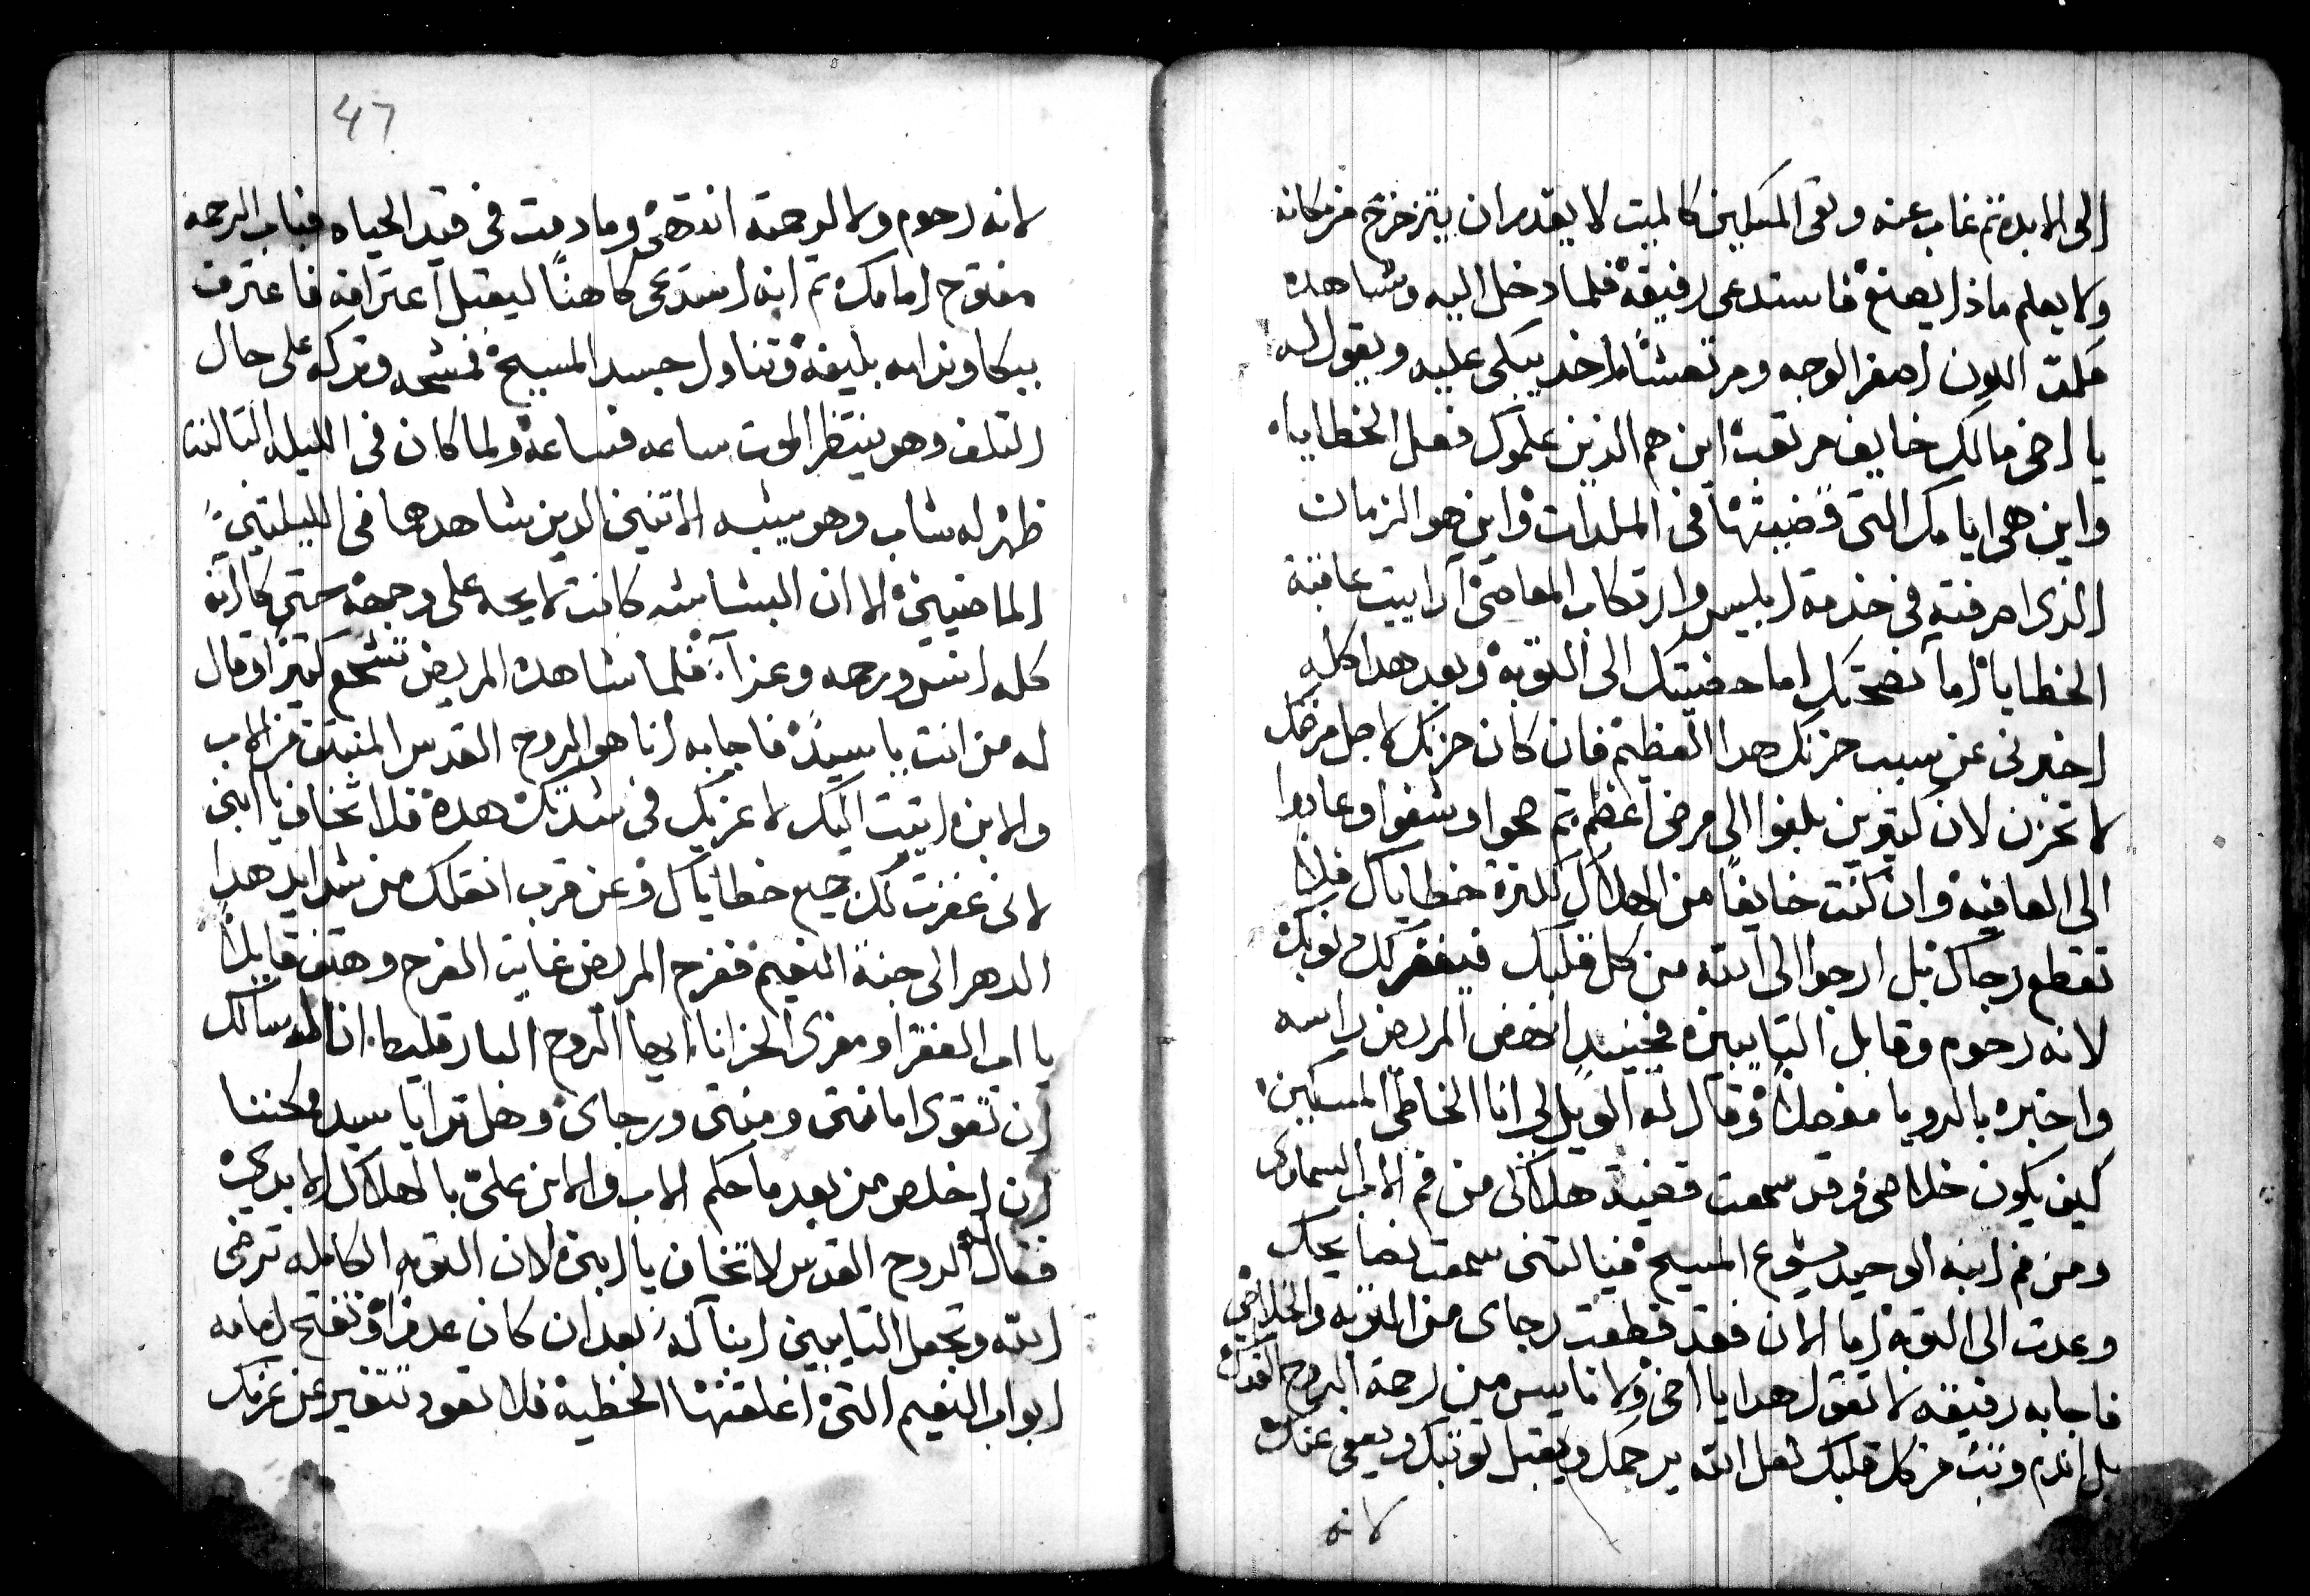 الى الابد ثم غاب عنه وبقى المسكين كالميت لا يقدر ان يتزحزح من مكانه
ولا يعلم ماذا يصنع فاستدعى رفيقه فلما دخل اليه وشاهده
كلمت اللون اصفر الوجه ومرتعشًا اخد يبكى عليه ويقول له
يا اخى مالك خايف مرتعب اين هم الذين علموك فعل الخطايا
واين هى ايامك التى قضيتها فى الملدات واين هو الزمان
الذى اصرفته فى خدمة ابليس وارتكاب المعاصى اراييت عاقبة
الخطايا اما نصحتك اما حضيتك الى التوبه وبعد هدا كله
اخبرنى عن سبب حزنك هدا العظيم فان كان حزنك لاجل مرضك
لا تحزن لان كتيرين بلغوا الى مرض اعظم تم صحوا وشفوا وعادوا
الى العافيه وان كنت خايفًا من الهلاك لكترة خطاياك فلا
تقطع رجاك بل ارجوا الى الله من كل قلبك فيغفر لك دنوبك
لانه رحوم وقابل التايبين فحينيدٍ انخفض المريض راسه
واخبره بالرويا مفصلاً وقال له الويل لى انا الخاطى المسكين
كيف يكون خلاصى وقد سمعت قضية هلاكى من فم الاب السماوى
ومن فم ابنه الوحيد يشوع المسيح فياليتنى سمعت نصايحك
وعدت الى التوبه اما الان فقد قطعت رجاى من التوبه والخلاص
فاجابه رفيقه لا تقول هدا يا اخى ولا تاييس من رحمة الروح القدس
بل اندم وتب من كل قلبك لعل الله يرحمك ويقبل توبتك ويعفى عنك
لانه
47
لانه رحوم ولا لرحمته انتهى وما دمت فى قيد الحياه فباب الرحمه
مفتوح امامك تم انه استدعى كاهنًا ليقبل اعترافه فاعترف
ببكا وندامه بليغة وتناول جسد المسيح فمشحه وتركه على حال
التلف وهو ينتظر الموت ساعه فساعة ولما كان فى الليله التالته
ظهر له شاب وهو يشبه الاتنين الدين شاهدهما فى الليلتين
الماضيين الا ان البشاشه كانت لايحه على وجهه حتى كا انه
كله انس ورحمه وعزآء فلما شاهده المريض تشجع كتيرًا وقال
له من انت يا سيدى فاجابه انا هو الروح القدس المنبتق من الاب
والابن اتيت اليك لاعزيك فى شدتك هده فلا تخاف يا ابنى
لانى غفرت لك جميع خطاياك وعن قرب انقلك من شدايد هدا
الدهر الى جنة النعيم ففرح المريض غايت الفرح وهتف قايلاً
يا اب الفقرا ومعزى الحزانا ايها الروح البارقليط انا اسالك
ان تقوى امانتى ومنتى ورجاى وهل ترا يا سيد يمكننا
ان اخلص من بعد ما حكم الاب والابن علىّ بالهلاك الابدى
فقال له الروح القدس لا تخاف يا ابنى لان التوبه الكامله ترضى
الله وتجعل التايبين ابنآ له بعد ان كان عدوًا وتفتح امامه
ابواب النعيم التى اغلقتها الخطية فلا تعود تتغير عن عزمك